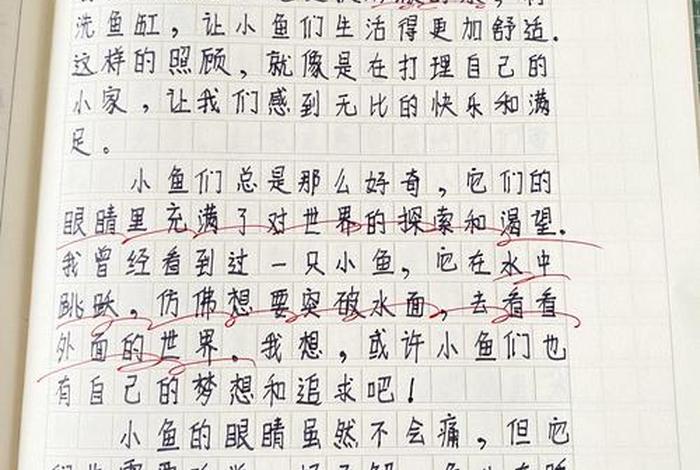 洗鱼缸，让小鱼们生活得更加舒适.
这样的照顾，就像是在打理自己的
小家，让我们感到无比的快乐和满
足。
小鱼们总是那么好奇，它们的
眼睛里充满了对世界的探索和渴望.
我曾经看到过一只小鱼，它在水中
跳跃，仿佛想要突破水面，去看看
外面的世界。我想，或许小鱼们也
有自己的梦想和追求吧！
小鱼的眼睛虽然不会痛，但它